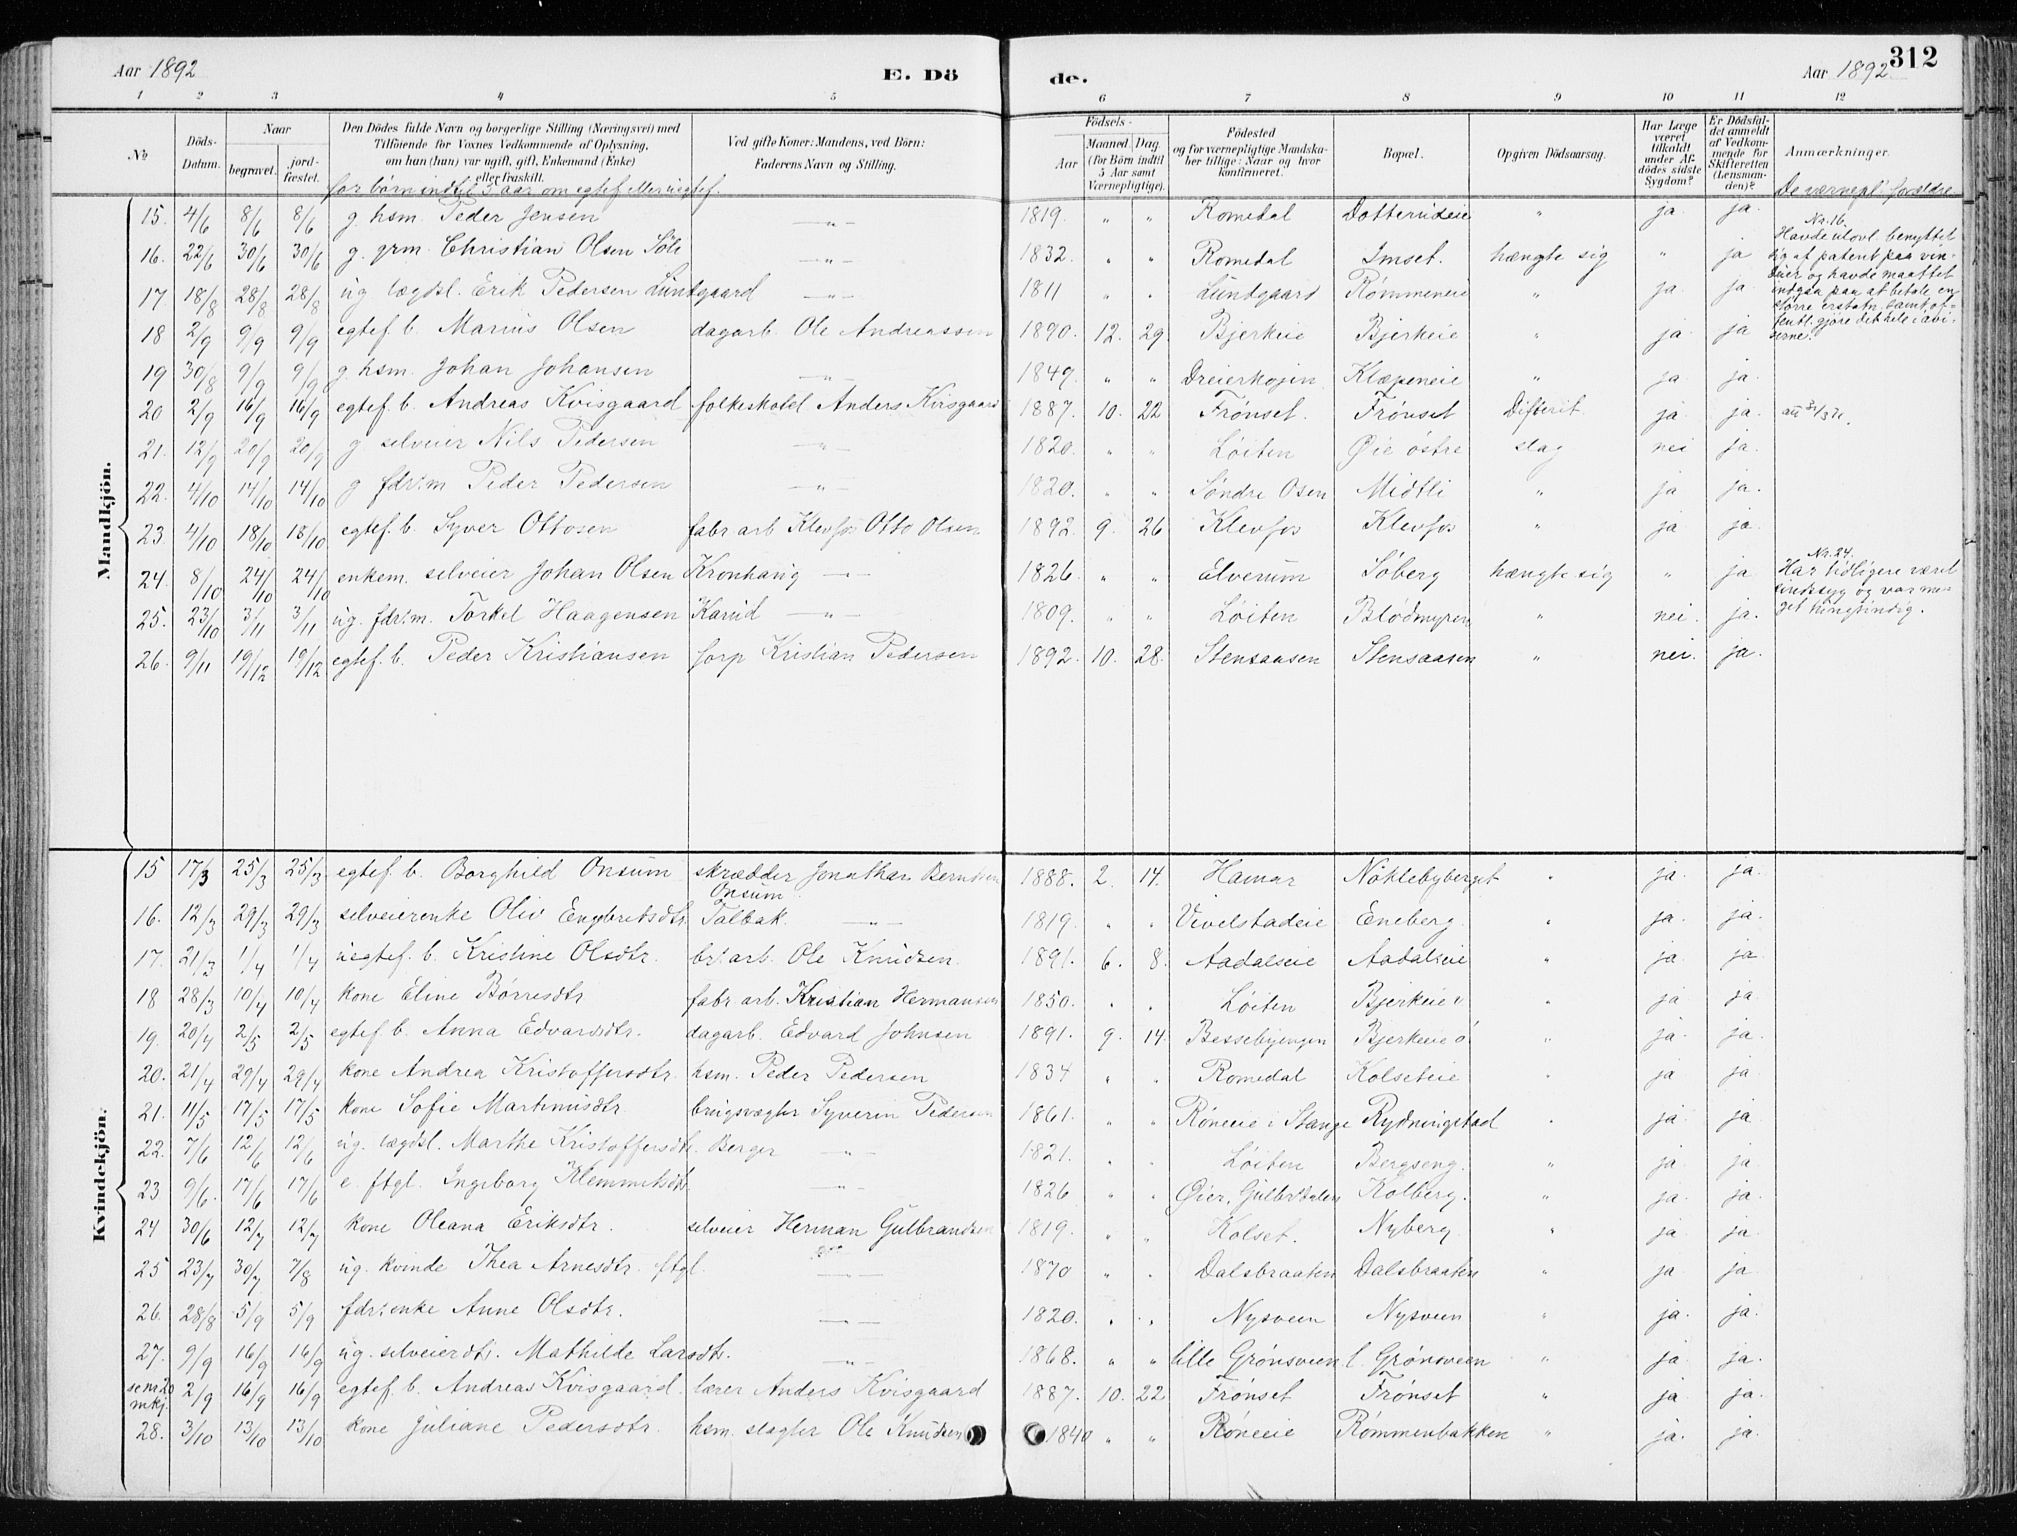 Aar 1892
E. Dö
de.
Aar 1892
312
1 2 3 4 5 6 7 8 9 10 11 12
№
Döds-Datum.
Naar
begravet.
jord-fæstet.
Den Dödes fulde Navn og borgerlige Stilling (Næringsvei) med
Tilföiende for Voxnes Vedkommende af Oplysning,
om han (hun) var ugift, gift, Enkemand (Enke)
eller fraskilt.
for börn indtil 5 aar om egtef. eller uegtef.
Ved gifte Koner: Mandens, ved Börn:
Faderens Navn og Stilling.
Födsels-
Aar
Maaned. Dag.
(for Börn indtil
5 Aar samt
Værnepligtige).
Födested
og for værnepligtige Mandska-
ber tillige: Naar og hvor
konfirmeret.
Bopæl.
Opgiven Dödsaarsag.
Har Læge været tilkaldt under Afdödes sidste Sygdom?
Er Dödsfaldet anmeldt af Vedkommende for Skifteretten (Lensmanden)?
Anmærkninger.
De værnepl. forældre
Mandkjön.
15. 4/6 8/6 8/6 g. hsm. Peder Jensen —„— 1819. „ „ Romedal Dotterudeie „ ja. ja.
16. 22/6 30/6 30/6 g. grm. Christian Olsen Söli —„— 1832. „ „ Romedal Imset. hængte sig „ ja
17 18/8 28/8 28/8 ug lægdsl. Erik Pedersen Lundgaard —„— 1811 „ „ Lundgaard Rømmeneie „ ja ja.
18 2/9 9/9 9/9 egtef. b. Marius Olsen dagarb. Ole Andreassen 1890. 12. 29. Bjerkeie Bjerkeie „ ja ja
19 30/8 9/9 9/9 g. hsm. Johan Johansen —„— 1849. „ „ Dreierkojen Klæpeneie „ ja ja.
20 2/9 16/9 16/9 egtef. b. Andreas Kvisgaard folkeskolel Anders Kvisgaard 1887. 10. 22 Frønset. Frønset Difterit. ja ja.
21. 12/9 20/9 20/9 g selveier Nils Pedersen —„— 1820. „ „ Løiten Øie østre slag nei ja.
22. 4/10 14/10 14/10 g fdr.m Peder Pedersen —„— 1820. „ „ Søndre Osen Midtli „ ja ja.
23. 4/10 18/10 18/10 egtef. b. Syver Ottosen fabr arb Klevfos Otto Olsen 1892. 9. 26 Klevfos Klevfos „ ja ja
24. 8/10 24/10 24/10 enkem. selveier Johan Olsen Kronhaug —„— 1826. „ „ Elverum Søberg hængte sig „ ja
25. 23/10 3/11 3/11 ug. fdr.m. Torkel Haagensen Karud —„— 1809. „ „ Løiten Blødmyren „ nei. ja.
26. 9/11 19/12 19/12 egtef. b. Peder Kristiansen forp Kristian Pedersen 1892. 10. 28. Stensaasen Stensaasen „ nei. ja.
Nr. 16.
Havde ulovl. benyttet
sig af patent paa vin-
duer og havde maattet
indgaa paa at betale en
større erstatn. samt of-
fentl. gjøre det hele i avi-
serne.
Nr. 24.
Har tidligere været
sindssyg og var me-
get tungsindig.
Kvindekjön.
15 17/3 25/3 25/3 egtef. b. Borghild Onsum skrædder Jonathan Berntsen Onsum 1888. 2. 14. Hamar Nöklebyberget „ ja. ja.
16. 12/3 29/3 29/3 selveierenke Oliv Engbretsdtr Talbak. —„— 1819. „ „ Vivelstadeie Eneberg. „ ja. ja.
17. 21/3 1/4 1/4 uegtef. b. Kristine Olsdtr. br. arb. Ole Knudsen. 1891. 6. 8. Aadalseie Aadalseie „ ja ja.
18 28/3 10/4 10/4 kone Eline Børresdtr fabr arb. Kristian Hermansen 1850. „ „ Løiten Bjerkeie v „ ja ja.
19. 20/4 2/5 2/5 egtef b. Anna Edvardsdtr. dagarb. Edvard Johnsen 1891. 9. 14. Bessebyengen Bjerkeie ø „ ja. ja.
20. 21/4 29/4 29/4 kone Andrea Kristoffersdtr. hsm. Peder Pedersen 1834 „ „ Romedal Kolseteie „ ja ja.
21. 11/5 17/5 17/5 kone Sofie Martinusdtr brugsvægter Syverin Pedersen 1861. „ „ Røneeie i Stange Rydningstad „ ja. ja.
22. 7/6 12/6 12/6 ug. lægdsl. Marthe Kristoffersdtr. Berger —„— 1821. „ „ Løiten Bergseng. „ ja ja.
23 9/6. 17/6 17/6 e. ftgl. Ingeborg Klemmetsdtr —„— 1826 „ „ Øier, Gulbrdalen Kolberg. „ ja. ja.
24 30/6 12/7 12/7 kone Oleana Eriksdtr. selveier Herman Gulbrandsen 1819. „ „ Kolset. Nyberg. „ ja ja.
25 23/7 30/7 7/8 ug. kvinde Thea Arnesdtr. ftgl. —„— 1870 „ „ Dalsbraaten Dalsbraaten „ ja ja.
26. 28/8 5/9 5/9 fdr. enke Anne Olsdtr. —„— 1820. „ „ Nysveen Nysveen „ ja. ja.
27. 9/9 16/9 16/9 ug. selveierdtr. Mathilde Larsdtr. —„— 1868. „ „ lille Grønsveen l. Grønsveen „ ja. ja.
se nr 20 mkj. 2/9 16/9 16/9 egtef b. Andreas Kvisgaard. lærer Anders Kvisgaard 1887. 10. 22 Frønset Frønset „ ja ja.
28. 3/10 13/10 13/10 kone Juliane Pedersdtr. hsm. slagter Ole Knudsen 1840 „ „ Røneeie Rømmenbakken „ ja. ja.